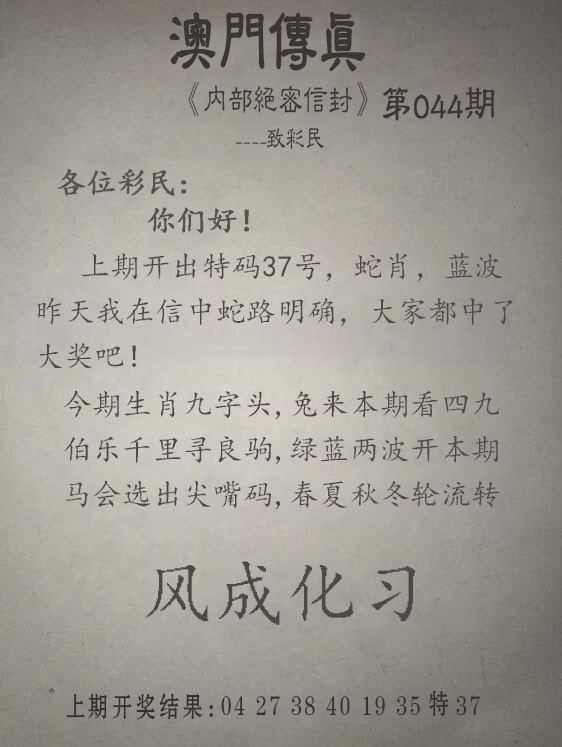 澳門傳真
《内部絕密信封》第044期
----致彩民
各位彩民：
你们好！
上期开出特码37号，蛇肖，蓝波
昨天我在信中蛇路明确，大家都中了
大奖吧！
今期生肖九字头,兔来本期看四九
伯乐千里寻良驹,绿蓝两波开本期
马会选出尖嘴码,春夏秋冬轮流转
风成化习
上期开奖结果:04 27 38 40 19 35 特 37